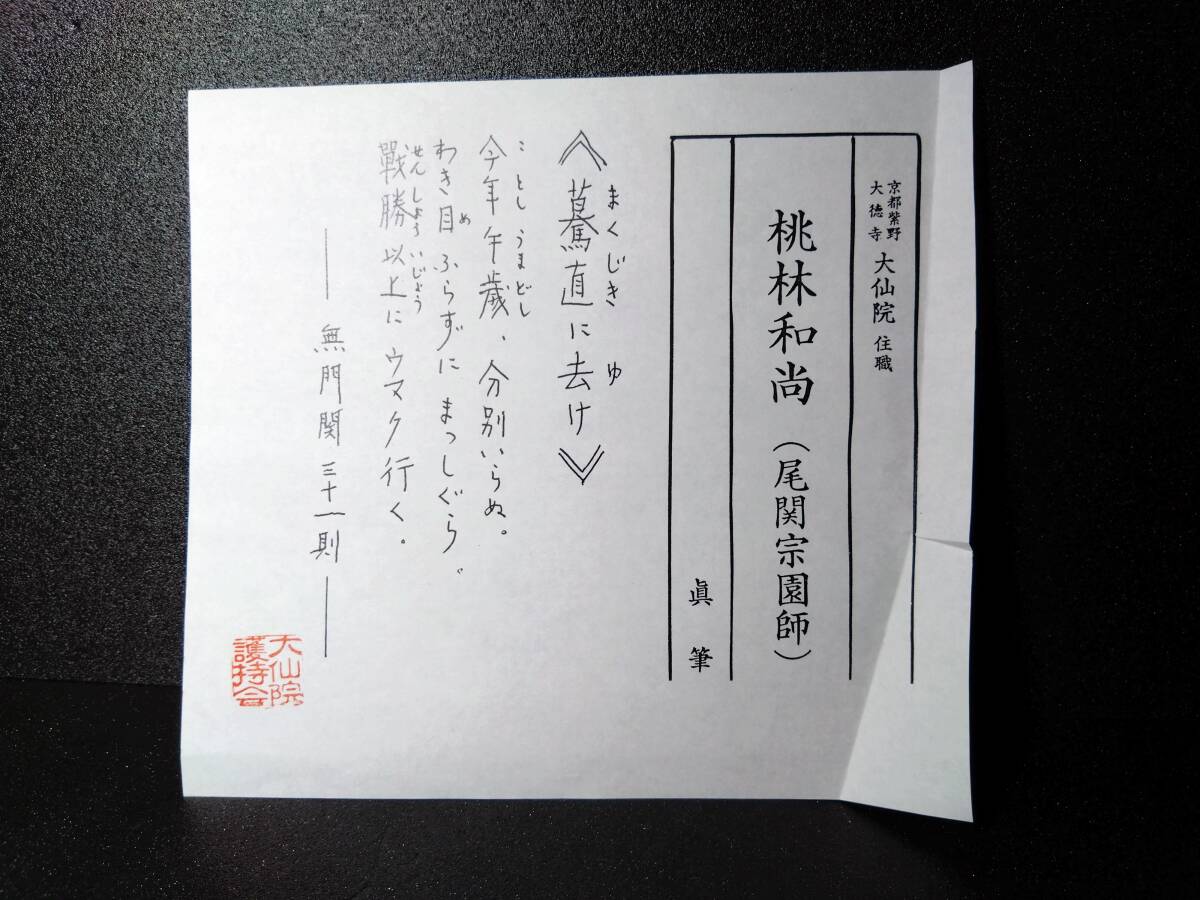 京都紫野
大徳寺
大仙院 住職
桃林和尚（尾関宗園師）
眞筆
まくじき ゆ
《驀直に去け》
ことし うまどし
今年午歳、分別いらぬ。
め
わき目ふらずにまっしぐら。
せんしょう いじょう
戰勝以上にウマク行く。
無門関三十一則
大仙院
護持会